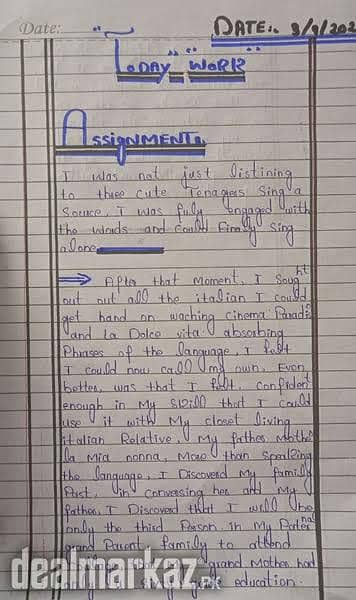 Date:
DATE:. 3/9/202
Today WORK
Assignment
I was not just listining
to three cute Tenagers Sing a
Source, I was fully engaged with
the words and could Finaly Sing
alone
⇒ After that moment, I Sought
out out all the italian I could
get hand on waching cinema Paradi
and La Dolce vita absorbing
Phrases of the language, I felt
I could now call my own. Even
better, was that I felt. confident
enough in My Skill that I could
use it with My closet living
italian Relative, My father Mothe
la Mia nonna, More than Speaking
the language, I Discoverd My family
Past, in conversing her and My
father, I Discoverd that I will be
only the third Person in My Pater nal
grand Parent, family to attend
grand Mother had
education.
dealmarkaz